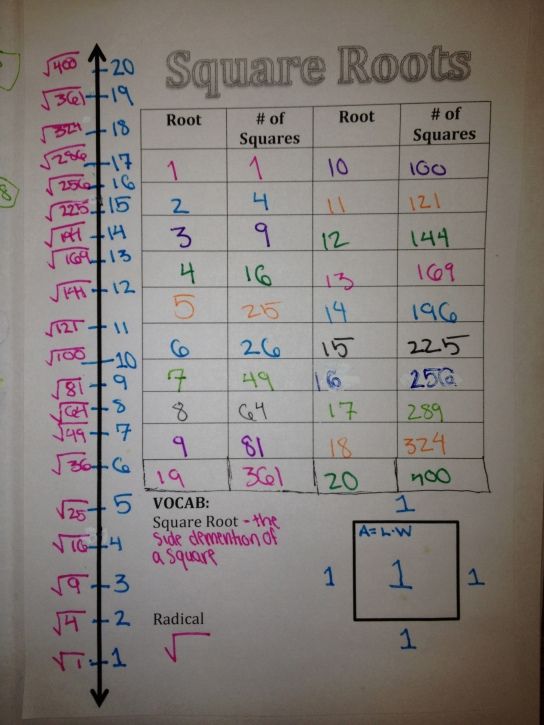 Square Roots
Root # of Squares Root # of Squares
1 1 10 100
2 4 11 121
3 9 12 144
4 16 13 169
5 25 14 196
6 26 15 225
7 49 16 256
8 64 17 289
9 81 18 324
19 361 20 400
√400 20
√361 19
√324 18
√286 17
√256 16
√225 15
14
√169 13
12
√121 11
√100 10
√81 9
√64 8
√49 7
√36 6
√25 5
√16 4
√9 3
√4 2
√1 1
VOCAB:
Square Root - the
side demention of
a square
Radical
√
1
A = L·W
1 1 1
1